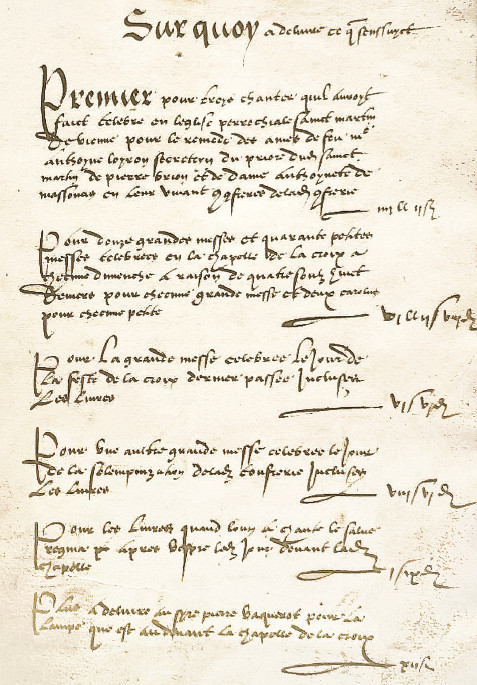 Sur quoy a delivre ce q̃ senssuyct
Premier pour troys chanter quil auroyt
faict celebre en leglise perrochiale sainct martin
de vienne pour le remedde des ames de feu mͬ
anthoyne loyron secretein du priore dud sainct
martin de pierre brion et de dame anthoynete de
massonas en leur vivant 9freres de lad 9frerie
iiii ll ii s
Pour douze grandes messes et quarante petites
messes celebrees en la chapelle de la croix a
checune dimenche a raison de quatre soulz huict
deniers pour checune grande messe et deux carolus
pour checune petite
vi ll ii s viii d
Pour la grande messe celebree le jour de
la feste de la croix dernier passee incluses
les livres
vi s vi d
Pour une aultre grande messe celebree le jour
de la solempnization de lad confrerie incluses
les livres
viii s vi d
Pour les livres quand lon a chante le salve
regina apres vespre led jour devant lad
chapelle
i s ix d
Plus a delivre a syre pierre vaquerot pour la
lampe que est au devant la chapelle de la croix
xii s